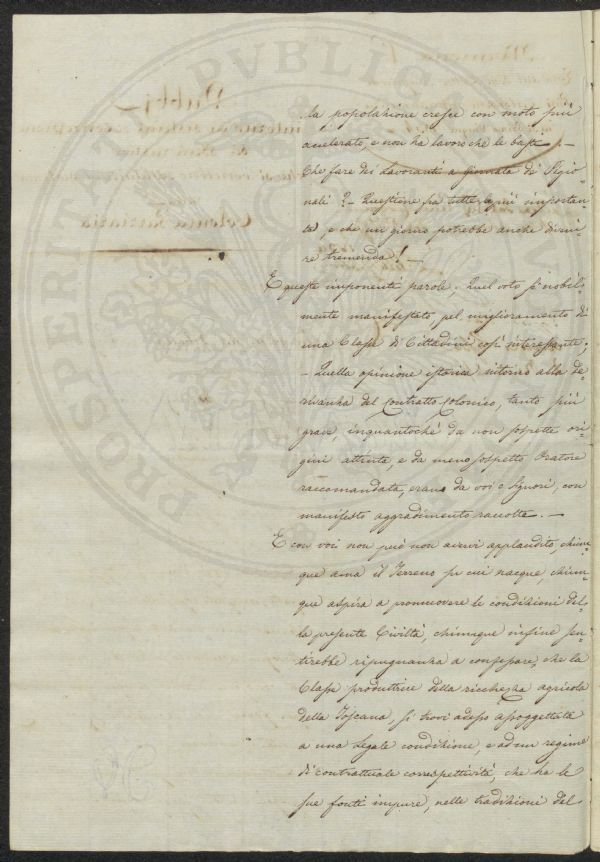 la popolazione cresce con moto più
accelerato, e non ha lavoro che le baste. —
Che fare dei Lavoranti a giornata di Pigio-
nali? — Questione fra tutte le più importan-
ti, e che un giorno potrebbe anche diveni-
re tremenda! —
E queste imponenti parole; Quel voto sì nobil-
mente manifestato, pel miglioramento di
una Classe di Cittadini così interessante;
— Quella opinione istorica intorno alla de-
rivanza del Contratto Colonico, tanto più
grave, inquantochè da non sospette ori-
gini attinta, e da meno sospetto Oratore
raccomandata, erano da voi o Signori, con
manifesto aggradimento raccolte. —
E con voi non può non avervi applaudito, chiun-
que ama il Terreno su cui nacque, chiun-
que aspira a promuovere le condizioni del-
la presente Civiltà, chiunque infine sen-
tirebbe ripugnanza a confessare, che la
Classe produttrice della ricchezza agricola
della Toscana, si trovi adesso assoggettata
a una legale condizione, e ad un regime
di contrattuale correspettività, che ha le
sue fonti impure, nelle tradizioni del
PROSPERITATI PVBLICAE